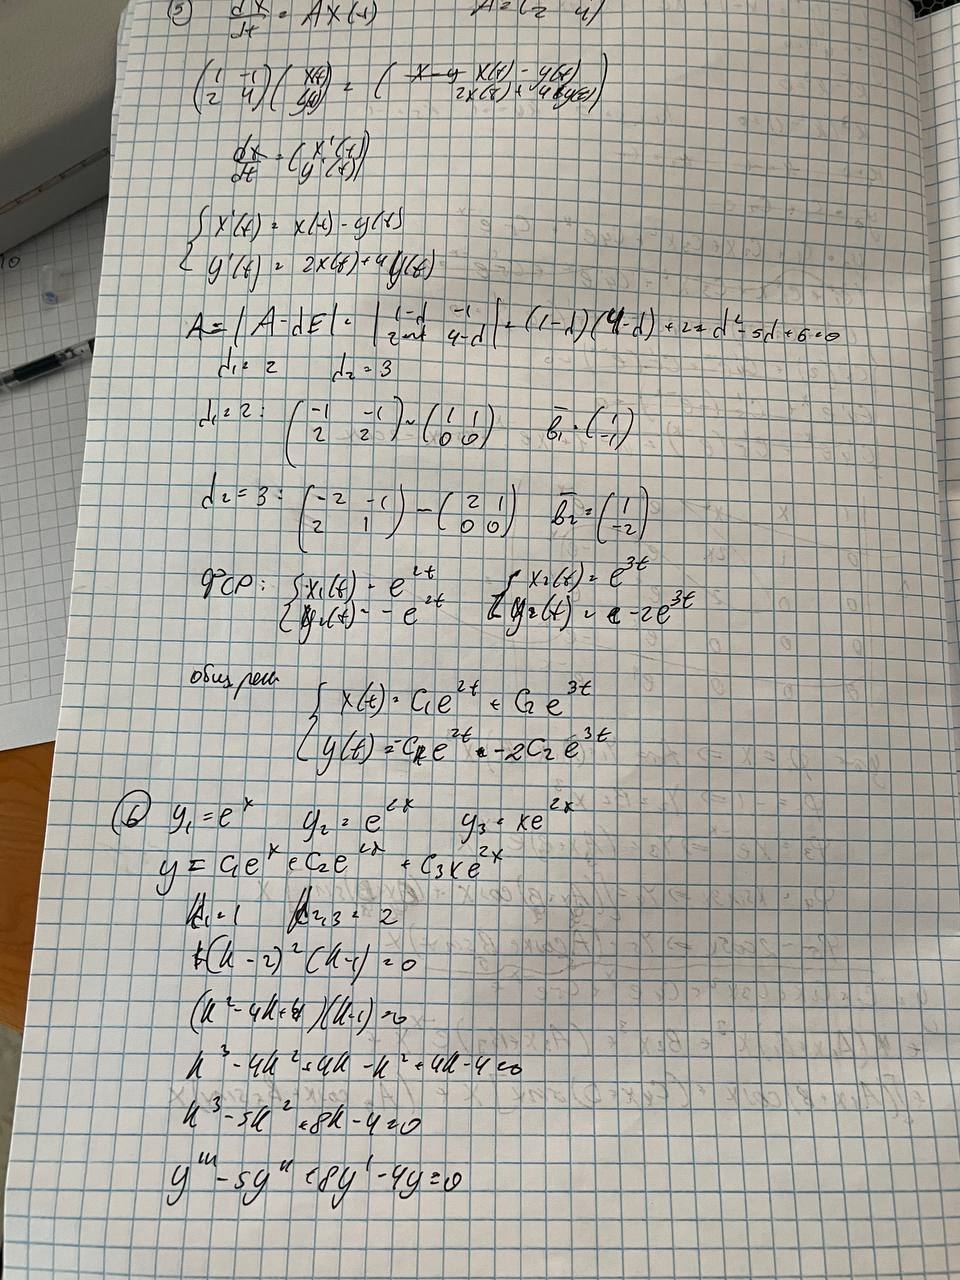 ⑤ dx/dt = AX(t) A = (2 4)
(1 -1; 2 4)(x(t); y(t)) = (x(t) - y(t); 2x(t) + 4y(t))
dx/dt = (x'(t); y'(t))
{ x'(t) = x(t) - y(t)
y'(t) = 2x(t) + 4y(t)
A = |A - dE| = |1-d -1; 2 4-d| = (1-d)(4-d) + 2 = d² - 5d + 6 = 0
d₁ = 2 d₂ = 3
d₁ = 2: (-1 -1; 2 2) ~ (1 1; 0 0) b̄₁ = (1; -1)
d₂ = 3: (-2 -1; 2 1) ~ (2 1; 0 0) b̄₂ = (1; -2)
ФСР: { x₁(t) = e^2t { x₂(t) = e^3t
y₁(t) = -e^2t y₂(t) = -2e^3t
общ реш { x(t) = C₁e^2t + C₂e^3t
y(t) = -C₁e^2t - 2C₂e^3t
⑥ y₁ = e^x y₂ = e^2x y₃ = xe^2x
y = C₁e^x + C₂e^2x + C₃xe^2x
k₁ = 1 k₂,₃ = 2
(k - 2)²(k - 1) = 0
(k² - 4k + 4)(k - 1) = 0
k³ - 4k² + 4k - k² + 4k - 4 = 0
k³ - 5k² + 8k - 4 = 0
y''' - 5y'' + 8y' - 4y = 0